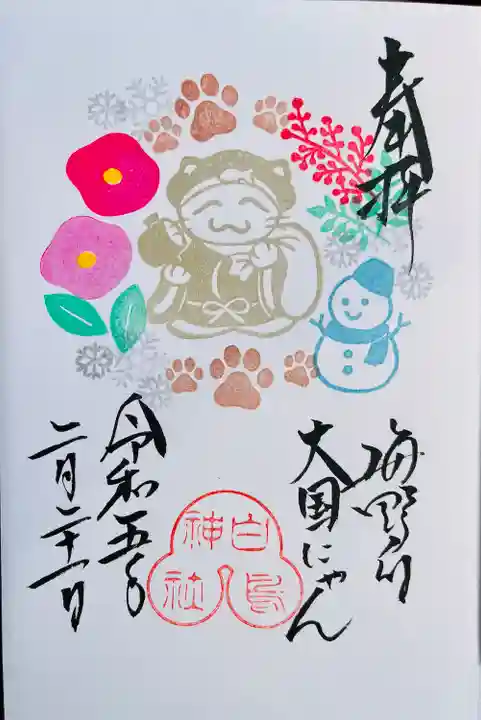 奉拝
海野町
大国にゃん
白鳥神社
令和五年
二月二十一日